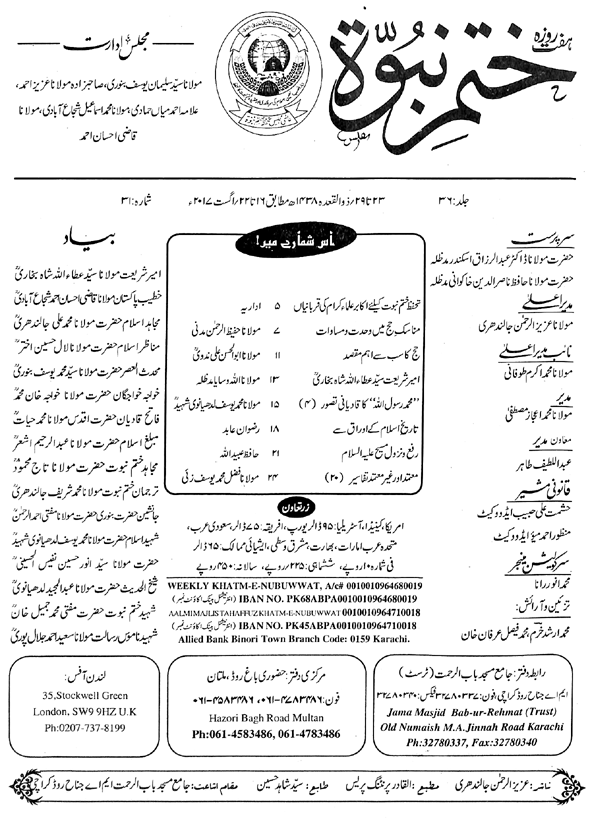 ہفت روزہ
ختم نبوۃ
مجلس ادارت
مولانا سید سلیمان یوسف بنوری، صاحبزادہ مولانا عزیز احمد،
علامہ احمد میاں حمادی، مولانا محمد اسماعیل شجاع آبادی، مولانا
قاضی احسان احمد
جلد: ۳۶
۲۳ تا ۲۹ ذوالقعدہ ۱۴۳۸ھ مطابق ۱۶ تا ۲۲ اگست ۲۰۱۷ء
شمارہ: ۳۱
سرپرست
حضرت مولانا ڈاکٹر عبدالرزاق اسکندر مدظلہ
حضرت مولانا حافظ ناصر الدین خاکوانی مدظلہ
مدیر اعلیٰ
مولانا عزیز الرحمٰن جالندھری
نائب مدیر اعلیٰ
مولانا محمد اکرم طوفانی
مدیر
مولانا محمد اعجاز مصطفیٰ
معاون مدیر
عبداللطیف طاہر
قانونی مشیر
حشمت علی حبیب ایڈووکیٹ
منظور احمد میو ایڈووکیٹ
سرکولیشن منیجر
محمد انور رانا
تزئین و آرائش:
محمد ارشد خرم، محمد فیصل عرفان خان
اس شمارے میں!
تحفظ ختم نبوت کیلئے اکابر علماء کرام کی قربانیاں ۵ اداریہ
مناسک حج میں وحدت و مساوات ۷ مولانا حفیظ الرحمٰن مدنی
حج کا سب سے اہم مقصد ۱۱ مولانا ابوالحسن علی ندویؒ
امیر شریعت سید عطاء اللہ شاہ بخاریؒ ۱۳ مولانا اللہ وسایا مدظلہ
”محمد رسول اللہ“ کا قادیانی تصور (۴) ۱۵ مولانا محمد یوسف لدھیانوی شہیدؒ
تاریخ اسلام کے اوراق سے ۱۸ رضوان عابد
رفع و نزول مسیح علیہ السلام ۲۱ حافظ عبید اللہ
معتمد اور غیر معتمد تفاسیر (۲۰) ۲۴ مولانا فضل محمد یوسف زئی
زرتعاون
امریکا، کینیڈا، آسٹریلیا: ۹۵ ڈالر یورپ، افریقہ: ۷۵ ڈالر، سعودی عرب،
متحدہ عرب امارات، بھارت، مشرق وسطی، ایشیائی ممالک: ۶۵ ڈالر
فی شمارہ ۱۰ روپے، ششماہی: ۲۲۵ روپے، سالانہ: ۴۵۰ روپے
WEEKLY KHATM-E-NUBUWWAT, A/c# 0010010964680019
IBAN NO. PK68ABPA0010010964680019 (انٹرنیشنل بینک اکاؤنٹ نمبر)
AALMI MAJLIS TAHAFFUZ KHATM-E-NUBUWWAT 0010010964710018
IBAN NO. PK45ABPA0010010964710018 (انٹرنیشنل بینک اکاؤنٹ نمبر)
Allied Bank Binori Town Branch Code: 0159 Karachi.
بیاد
امیر شریعت مولانا سید عطاء اللہ شاہ بخاریؒ
خطیب پاکستان مولانا قاضی احسان احمد شجاع آبادیؒ
مجاہد اسلام حضرت مولانا محمد علی جالندھریؒ
مناظر اسلام حضرت مولانا لال حسین اخترؒ
محدث العصر حضرت مولانا سید محمد یوسف بنوریؒ
خواجہ خواجگان حضرت مولانا خواجہ خان محمدؒ
فاتح قادیان حضرت اقدس مولانا محمد حیاتؒ
مبلغ اسلام حضرت مولانا عبدالرحیم اشعرؒ
مجاہد ختم نبوت حضرت مولانا تاج محمودؒ
ترجمان ختم نبوت حضرت مولانا محمد شریف جالندھریؒ
جانشین حضرت بنوری حضرت مولانا مفتی احمد الرحمٰنؒ
شہید اسلام حضرت مولانا محمد یوسف لدھیانوی شہیدؒ
حضرت مولانا سید انور حسین نفیس الحسینیؒ
شیخ الحدیث حضرت مولانا عبدالمجید لدھیانویؒ
شہید ختم نبوت حضرت مفتی محمد جمیل خانؒ
شہید ناموس رسالت مولانا سعید احمد جلال پوریؒ
رابطہ دفتر: جامع مسجد باب الرحمت (ٹرسٹ)
ایم اے جناح روڈ کراچی، فون: ۳۲۷۸۰۳۳۷ فیکس: ۳۲۷۸۰۳۴۰
Jama Masjid Bab-ur-Rehmat (Trust)
Old Numaish M.A. Jinnah Road Karachi
Ph:32780337, Fax:32780340
مرکزی دفتر: حضوری باغ روڈ، ملتان
فون: ۰۶۱-۴۷۸۳۴۸۶، ۰۶۱-۴۵۸۳۴۸۶
Hazori Bagh Road Multan
Ph:061-4583486, 061-4783486
لندن آفس:
35,Stockwell Green
London, SW9 9HZ U.K
Ph:0207-737-8199
ناشر: عزیز الرحمٰن جالندھری مطبع: القادر پرنٹنگ پریس طابع: سید شاہد حسین مقام اشاعت: جامع مسجد باب الرحمت ایم اے جناح روڈ کراچی